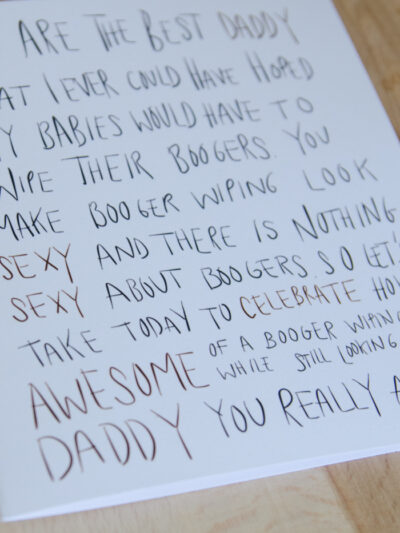 ARE THE BEST DADDY
AT I EVER COULD HAVE HOPED
Y BABIES WOULD HAVE TO
WIPE THEIR BOOGERS. YOU
MAKE BOOGER WIPING LOOK
SEXY AND THERE IS NOTHING
SEXY ABOUT BOOGERS. SO LET'S
TAKE TODAY TO CELEBRATE HOW
AWESOME OF A BOOGER WIPING
WHILE STILL LOOKING
DADDY YOU REALLY A